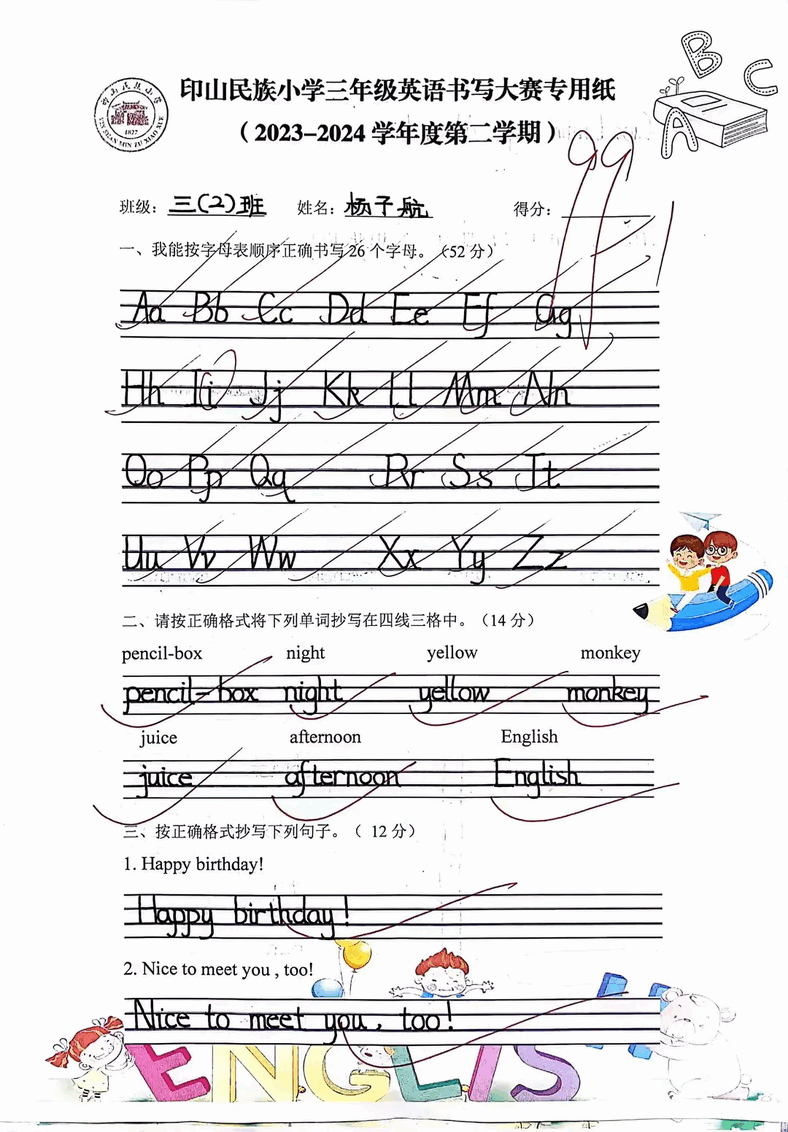 印山民族小学
1827
YIN SHAN MIN ZU XIAO XUE
印山民族小学三年级英语书写大赛专用纸
（2023–2024 学年度第二学期）
B C A
99
班级: 三(2)班 姓名: 杨子航 得分:
一、我能按字母表顺序正确书写26个字母。（52 分）
Aa Bb Cc Dd Ee Ff Gg
Hh Ii Jj Kk Ll Mm Nn
Oo Pp Qq Rr Ss Tt
Uu Vv Ww Xx Yy Zz
二、请按正确格式将下列单词抄写在四线三格中。（14 分）
pencil-box night yellow monkey
pencil-box night yellow monkey
juice afternoon English
juice afternoon English
三、按正确格式抄写下列句子。（ 12 分）
1. Happy birthday!
Happy birthday!
2. Nice to meet you , too!
Nice to meet you, too!
ENGLISH